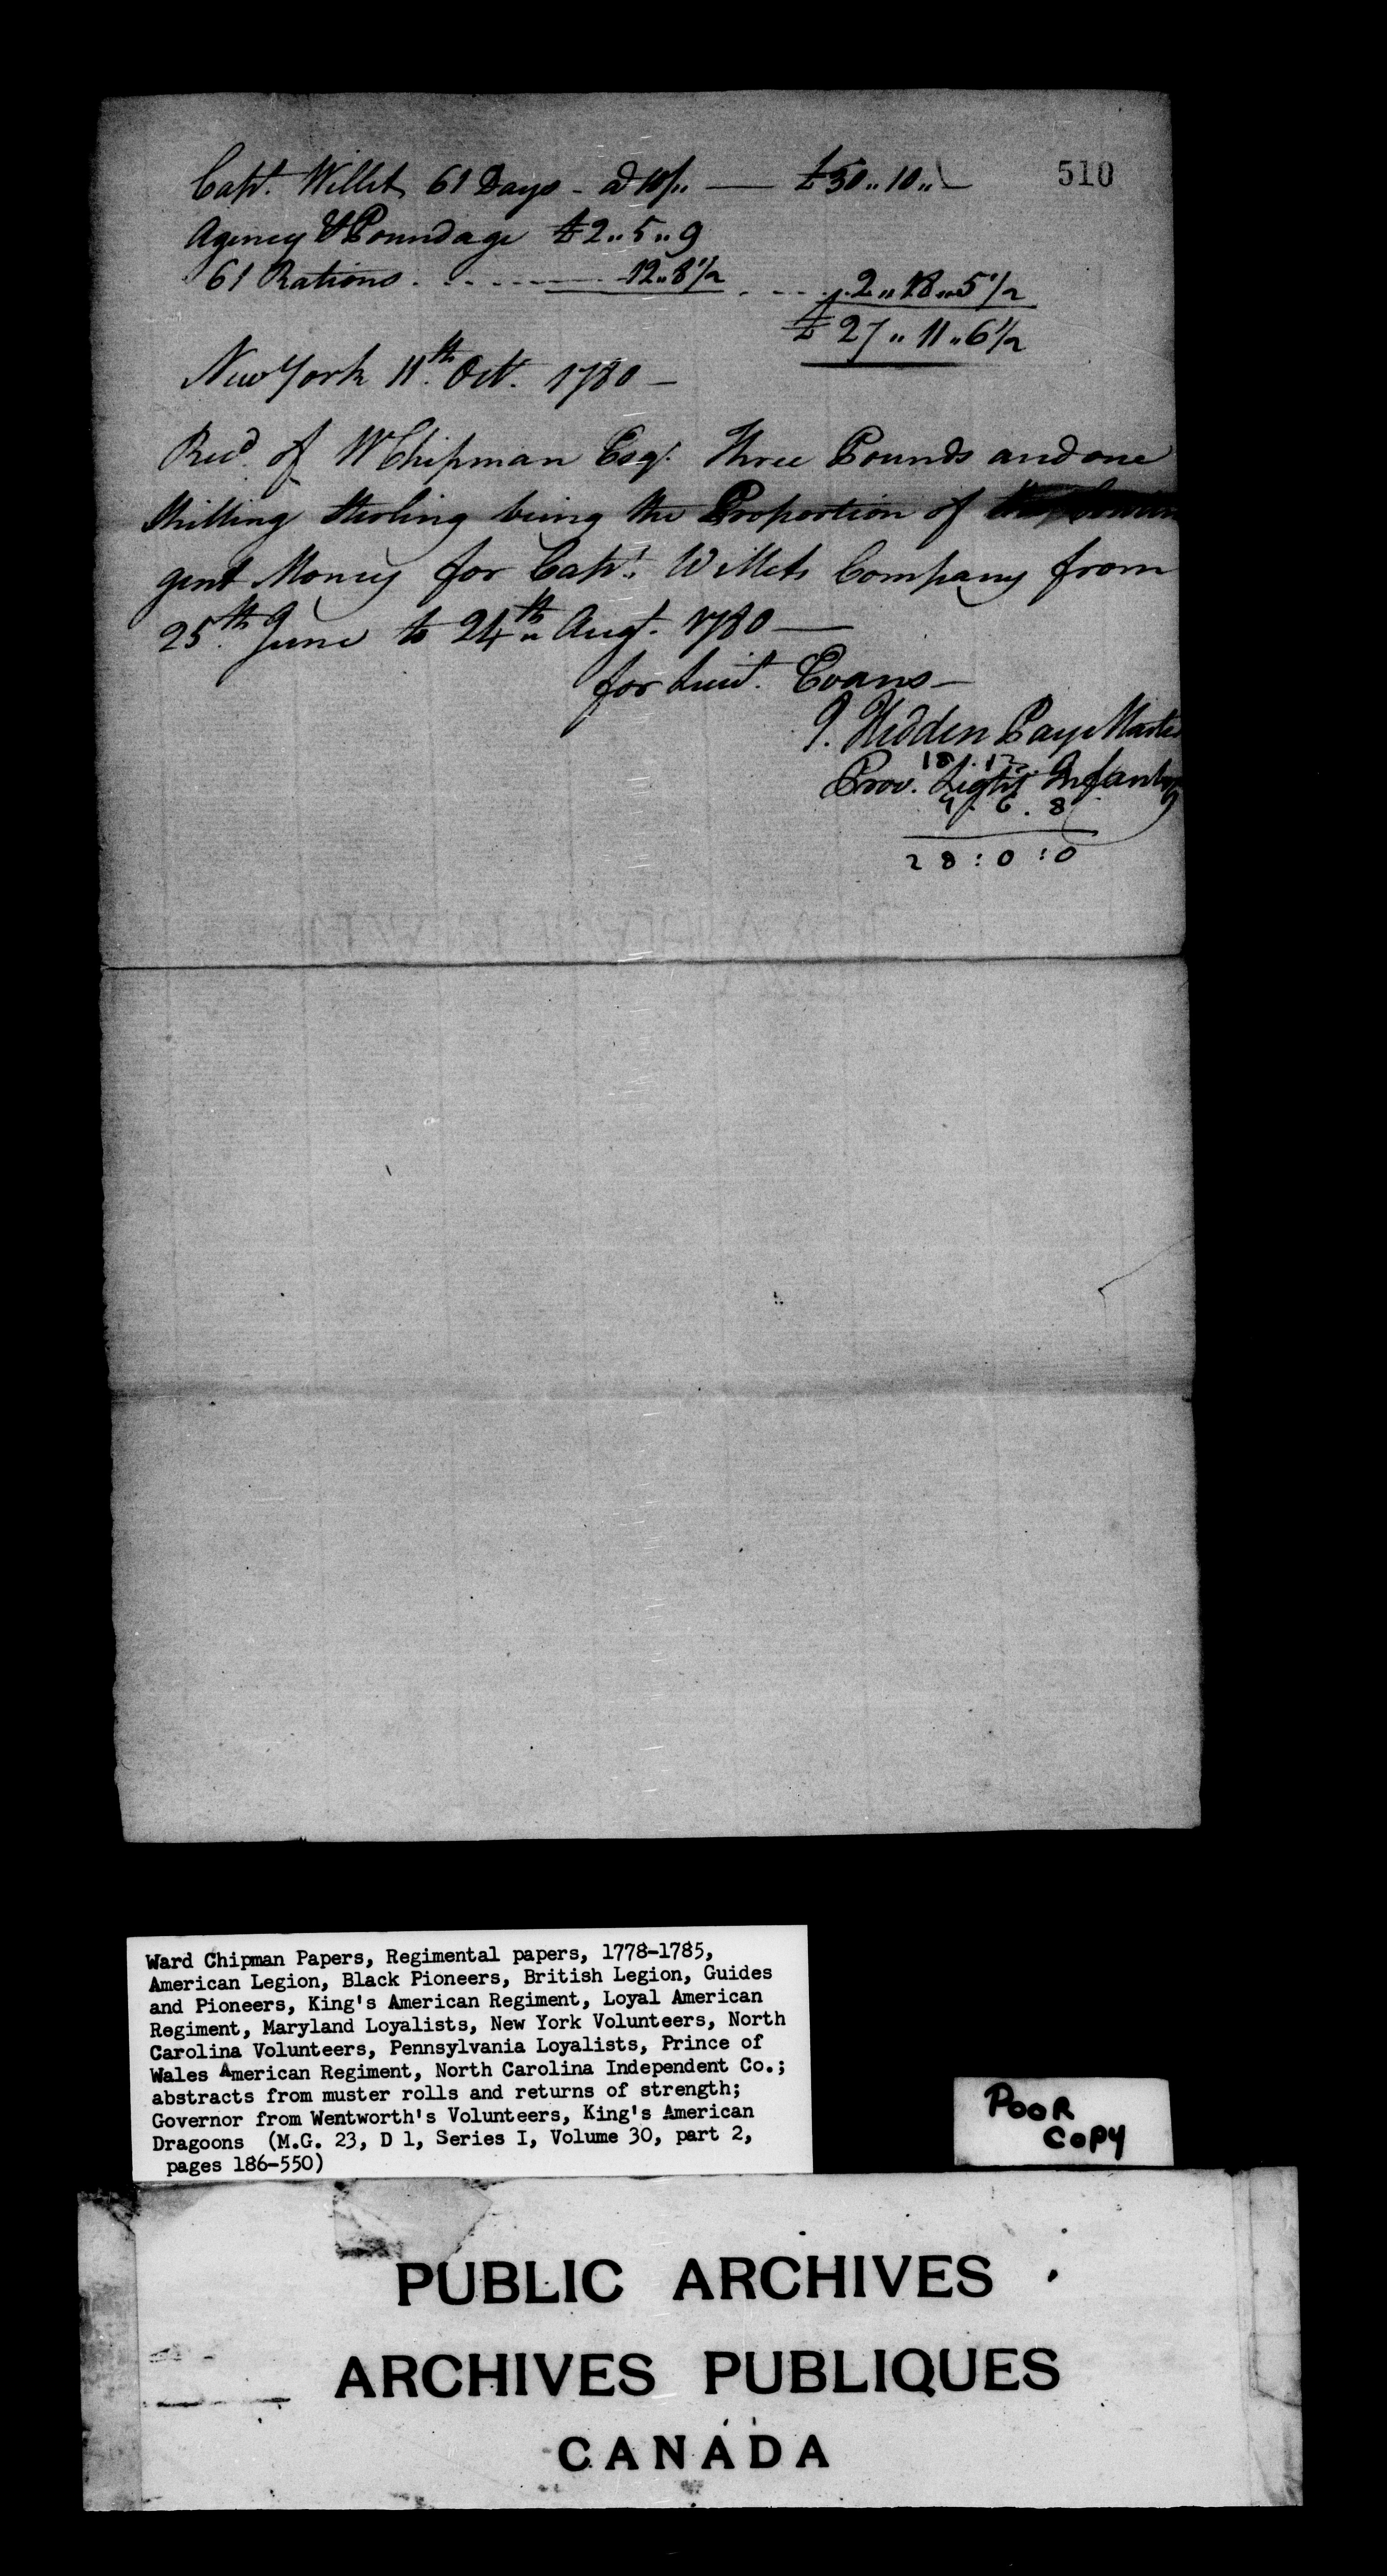 510
Capt. Willet 61 Days - a 10/.. — £30..10..
Agency & Poundage £2..5..9
61 Rations . . . - - - - 12..8½ . - - - . 2..18..5½
£27..11..6½
New York 11th. Oct. 1780 —
Recd. of W Chipman Esqr. Three Pounds and one
Shilling Sterling being the Proportion of
gent Money for Capt. Willets Company from
25th. June to 24th. Augt. 1780 —
for Lieut. Evans —
Hedden Paye Master
18 . 13
Prov. Light Infantry
9 . 6 . 8
28 : 0 : 0
Ward Chipman Papers, Regimental papers, 1778-1785,
American Legion, Black Pioneers, British Legion, Guides
and Pioneers, King's American Regiment, Loyal American
Regiment, Maryland Loyalists, New York Volunteers, North
Carolina Volunteers, Pennsylvania Loyalists, Prince of
Wales American Regiment, North Carolina Independent Co.;
abstracts from muster rolls and returns of strength;
Governor from Wentworth's Volunteers, King's American
Dragoons (M.G. 23, D 1, Series I, Volume 30, part 2,
pages 186-550)
POOR
COPY
PUBLIC ARCHIVES
ARCHIVES PUBLIQUES
CANADA